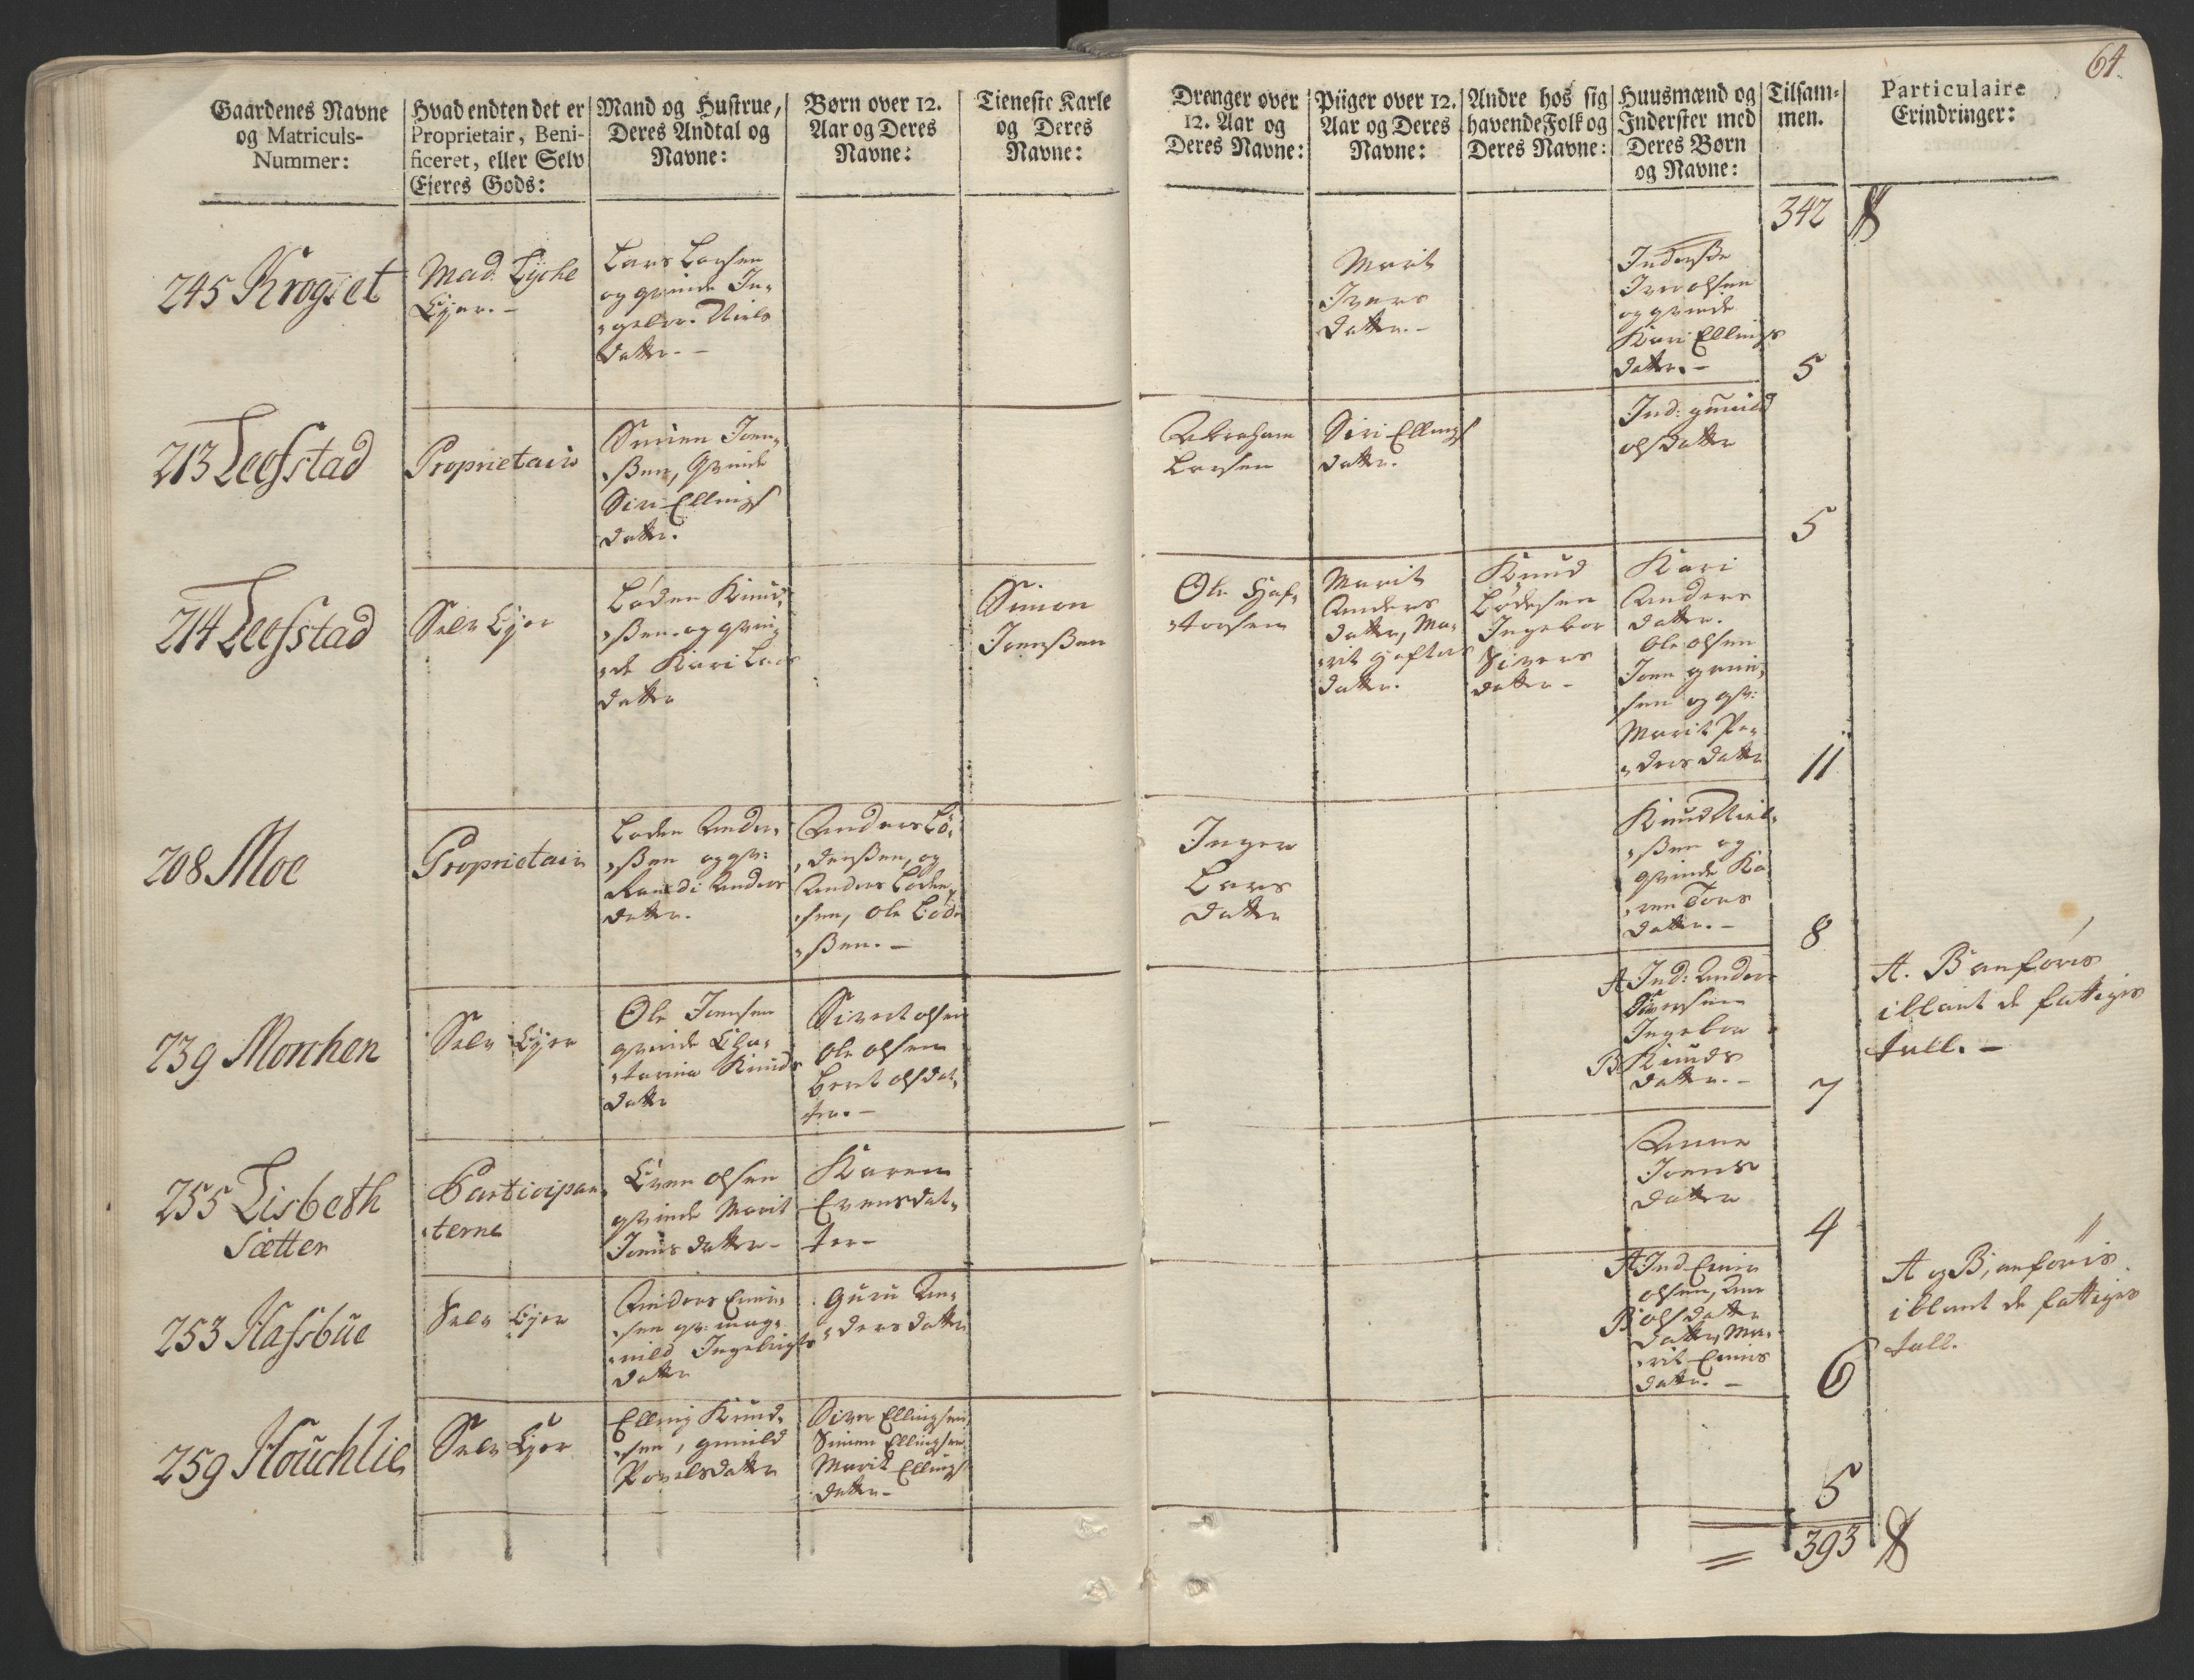 64.
Gaardenes Navne
og Matriculs-
Nummer:
Hvad endten det er
Proprietair, Beni-
ficeret, eller Selv
Ejeres Gods:
Mand og Hustrue,
Deres Andtal og
Navne:
Børn over 12.
Aar og Deres
Navne:
Tieneste Karle
og Deres
Navne:
Drenger over
12. Aar og
Deres Navne:
Piiger over 12.
Aar og Deres
Navne:
Andre hos sig
havende Folk og
Deres Navne:
Huusmænd og
Inderster med
Deres Børn
og Navne:
Tilsam-
men.
Particulaire
Erindringer:
342
245 Krogset
Mad. Lyche
Ejer.-
Lars Larsen
og qvinde In-
gebor Niels
datter.-
Marit
Ivers
datter.-
Inderste
Iver olsen
og qvinde
Kari Ellings
datter.-
5
213 Leefstad
Proprietair
Simen Joen-
ßen, Qvinde
Siri Ellings
datter.
Abraham
Larsen
Siri Ellings
datter.
Ind: gunild
olsdatter
5
214 Leefstad
Selv Ejer
Loden Knud-
ßen og qvin-
de Kari Lars
datter
Simon
Joenßen
Ole Haf-
torsen
Marit
Anders
datter, Ma-
rit Haftors
datter.
Knud
Lodesen
Ingebor
Sivers
datter-
Kari
Anders
datter.
Ole olsen
Joen
sen og qv:
Marit Pe-
ders datter
11
208 Moe
Proprietair
Loden Ander-
ßen og qv:
Randi Anders
datter.
Anders Lo-
denßen, og
Anders Loden-
sen, Ole Lode
ßen.-
Inger
Lars
datter
Knud Niel-
ßen og
qvinde Ka-
ren Tors
datter.-
8
239 Monchen
Selv Ejer
Ole Joensen
qvinde Cha-
tarina Knuds
datter
Sivert olsen
Ole olsen
Berit olsdat-
ter.-
A Ind: Anders
Iversen
Ingebor
B Knuds
datter.-
7
A. B anføres
iblant de fattiges
tall.-
255 Lisbeth
Sætter
Participan-
terne
Even olsen
qvinde Marit
Joens datter-
Karen
Evensdat-
ter-
Anne
Joens
datter
4
253 Hassbue
Selv Ejer
Anders Enin-
sen qv: mag-
nild Ingebrigts
datter
Guru An-
ders datter
A Ind Enin
olsen, Ane
B olsdatter
datter, Ma-
rit Enins
datter.-
6
A og B, anføres
iblant de fattiges
tall.
259 Houchlie
Selv Ejer
Elling Knud-
sen, gunild
Povelsdatter
Siver Ellingsen
Simen Ellingsen
Marit Ellings
datter-
5
393